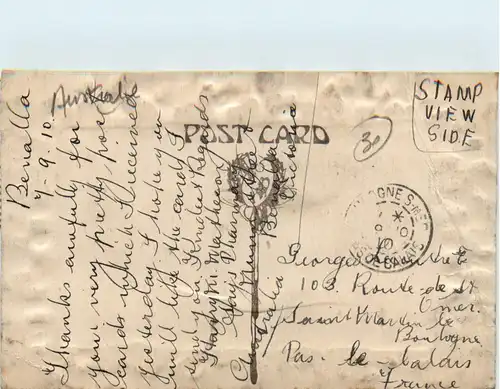 Australia
Benalla
7. 9. 10.
Thanks awfully for
your very pretty post
cards which I received
yesterday. I hope you
will like the card I
send you. Kindest Regards
Harry M. Matheson
Benalla
Victoria
Australia
POST CARD
30
STAMP
VIEW
SIDE
BOULOGNE S-MER
Georges
103. Route de St
Omer.
Saint Martin les
Boulogne
Pas-de-Calais
France